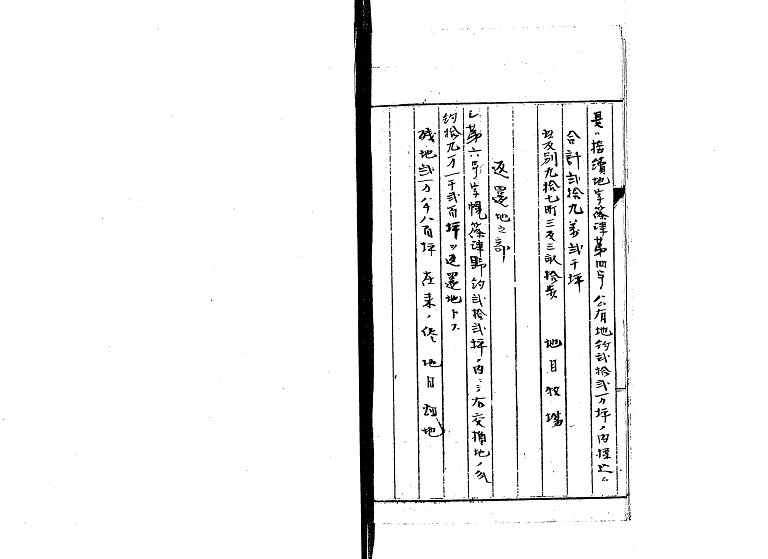 是ハ接續地字篠津第四号公有地約弐拾弐万坪ノ内
合計弐拾九萬弐千坪
此反別九拾七町三反三畝拾歩 地目牧場
返還地之部
第六号字幌篠津野約弐拾弐坪ノ内 右交換地ノ
約拾九万一千弐百坪ヲ返還地トス
残地弐万八千八百坪 在来ノ侭 地目 地